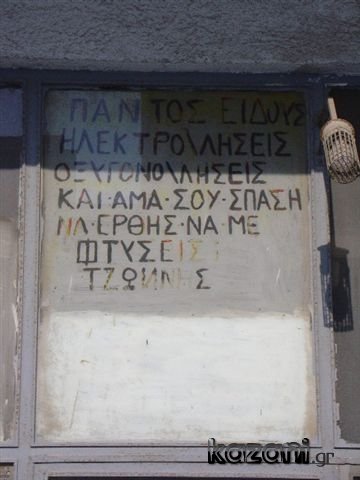 ΠΑΝΤΟΣ ΕΙΔΟΥΣ
ΗΛΕΚΤΡΟ\ΛΗΣΕΙΣ
ΟΞΥΓΟΝΟ\ΛΗΣΕΙΣ
ΚΑΙ·ΑΜΑ·ΣΟΥ·ΣΠΑΣΗ
ΝΑ·ΕΡΘΗΣ·ΝΑ·ΜΕ
ΦΤΥΣΕΙΣ
ΤΖΩΝΝΗΣ
kazani.gr